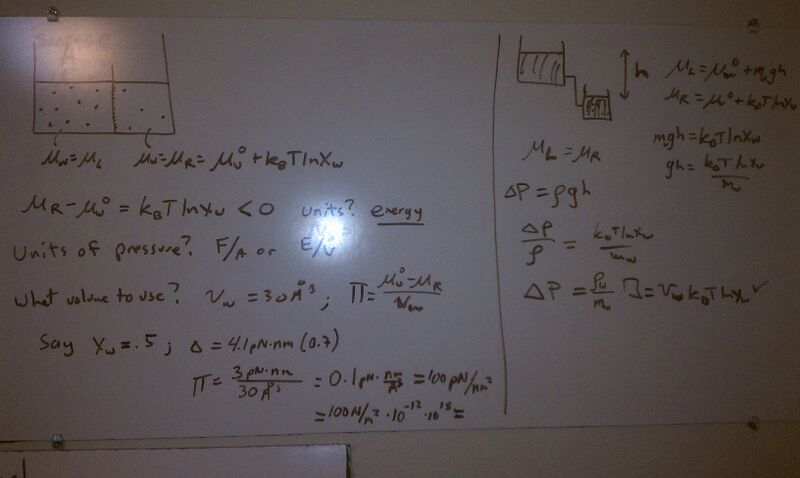 μw = μL μw = μR = μw° + kBT ln Xw
μR − μw° = kBT ln Xw < 0 units? energy
Units of pressure? F/A or E/V
What volume to use? Vw = 30 Å³ ; Π = (μw° − μR)/Vw
Say Xw = .5 ; Δ = 4.1 pN·nm (0.7)
Π = 3 pN·nm / 30 Å³ = 0.1 pN· nm/Å³ = 100 pN/nm²
= 100 N/m² · 10⁻¹² · 10¹⁸ =
h
μL = μw° + mwgh
μR = μ° + kBT ln Xw
μL = μR
mgh = kBT ln Xw
gh = kBT ln Xw / mw
ΔP = ρgh
Δρ/ρ = kBT ln Xw / mw
ΔP = ρw/mw [] = Vw kBT ln Xw ✓